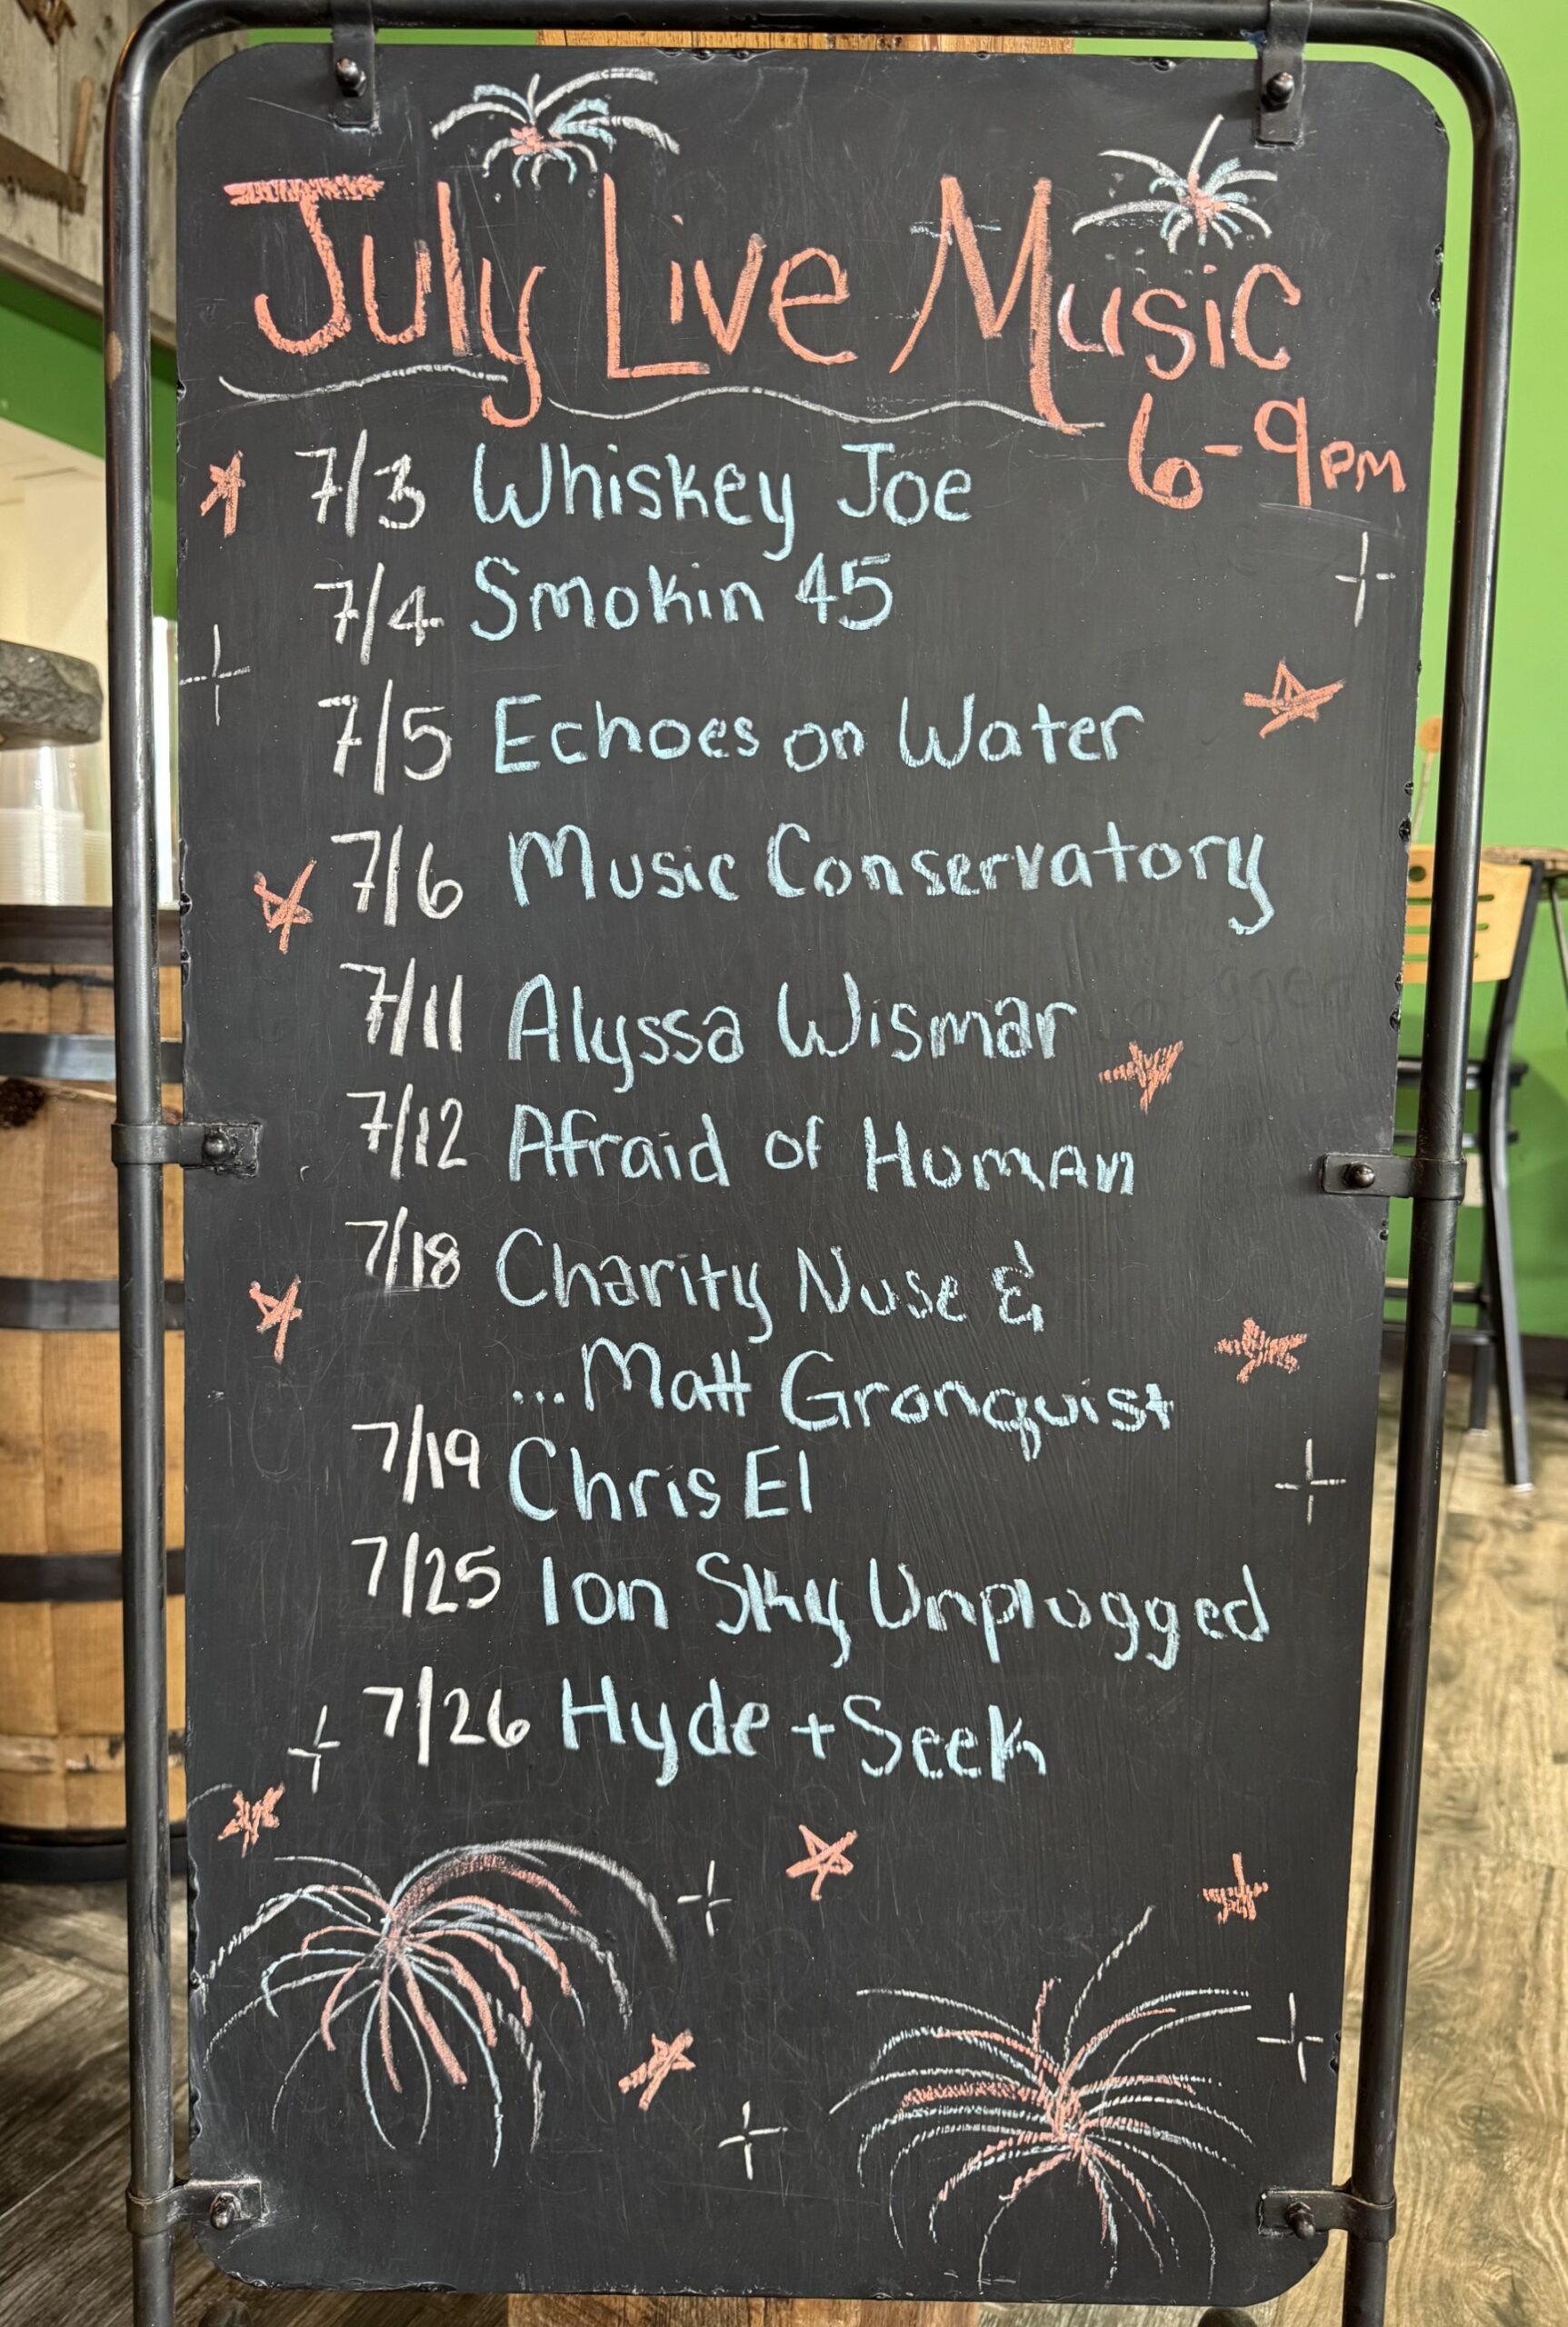 July Live Music
6-9PM
7/3 Whiskey Joe
7/4 Smokin 45
7/5 Echoes on Water
7/6 Music Conservatory
7/11 Alyssa Wismar
7/12 Afraid of HumAn
7/18 Charity Nuse &
...Matt Gronquist
7/19 Chris El
7/25 Ion Sky Unplugged
7/26 Hyde + Seek